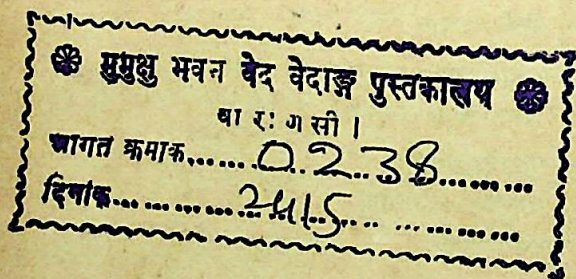 ❀ मुमुक्षु भवन वेद वेदाङ्ग पुस्तकालय ❀
वा रा ण सी ।
आगत क्रमाक......0238.........
दिनांक.........24/5.... .............